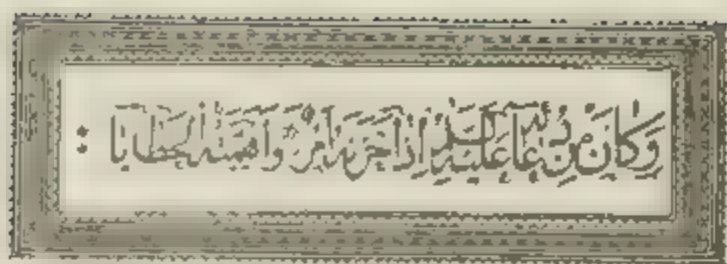 وَكَانَ مِنْ دُعَائِهِ عَلَيْهِ السَّلَامُ إِذَا حَزَنَهُ أَمْرٌ وَأَهَمَّتْهُ الْخَطَايَا :